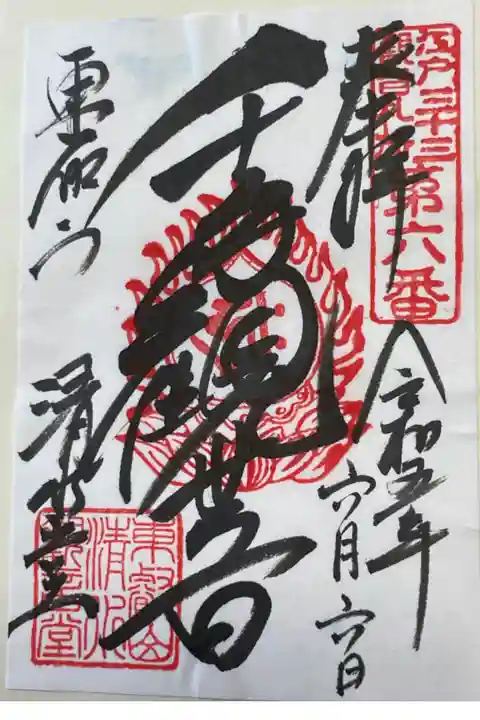 江戸三十三
観音札所第六番
奉拝
令和五年
六月六日
千手観世音
東叡山
清水堂
東叡山
清水
観音堂